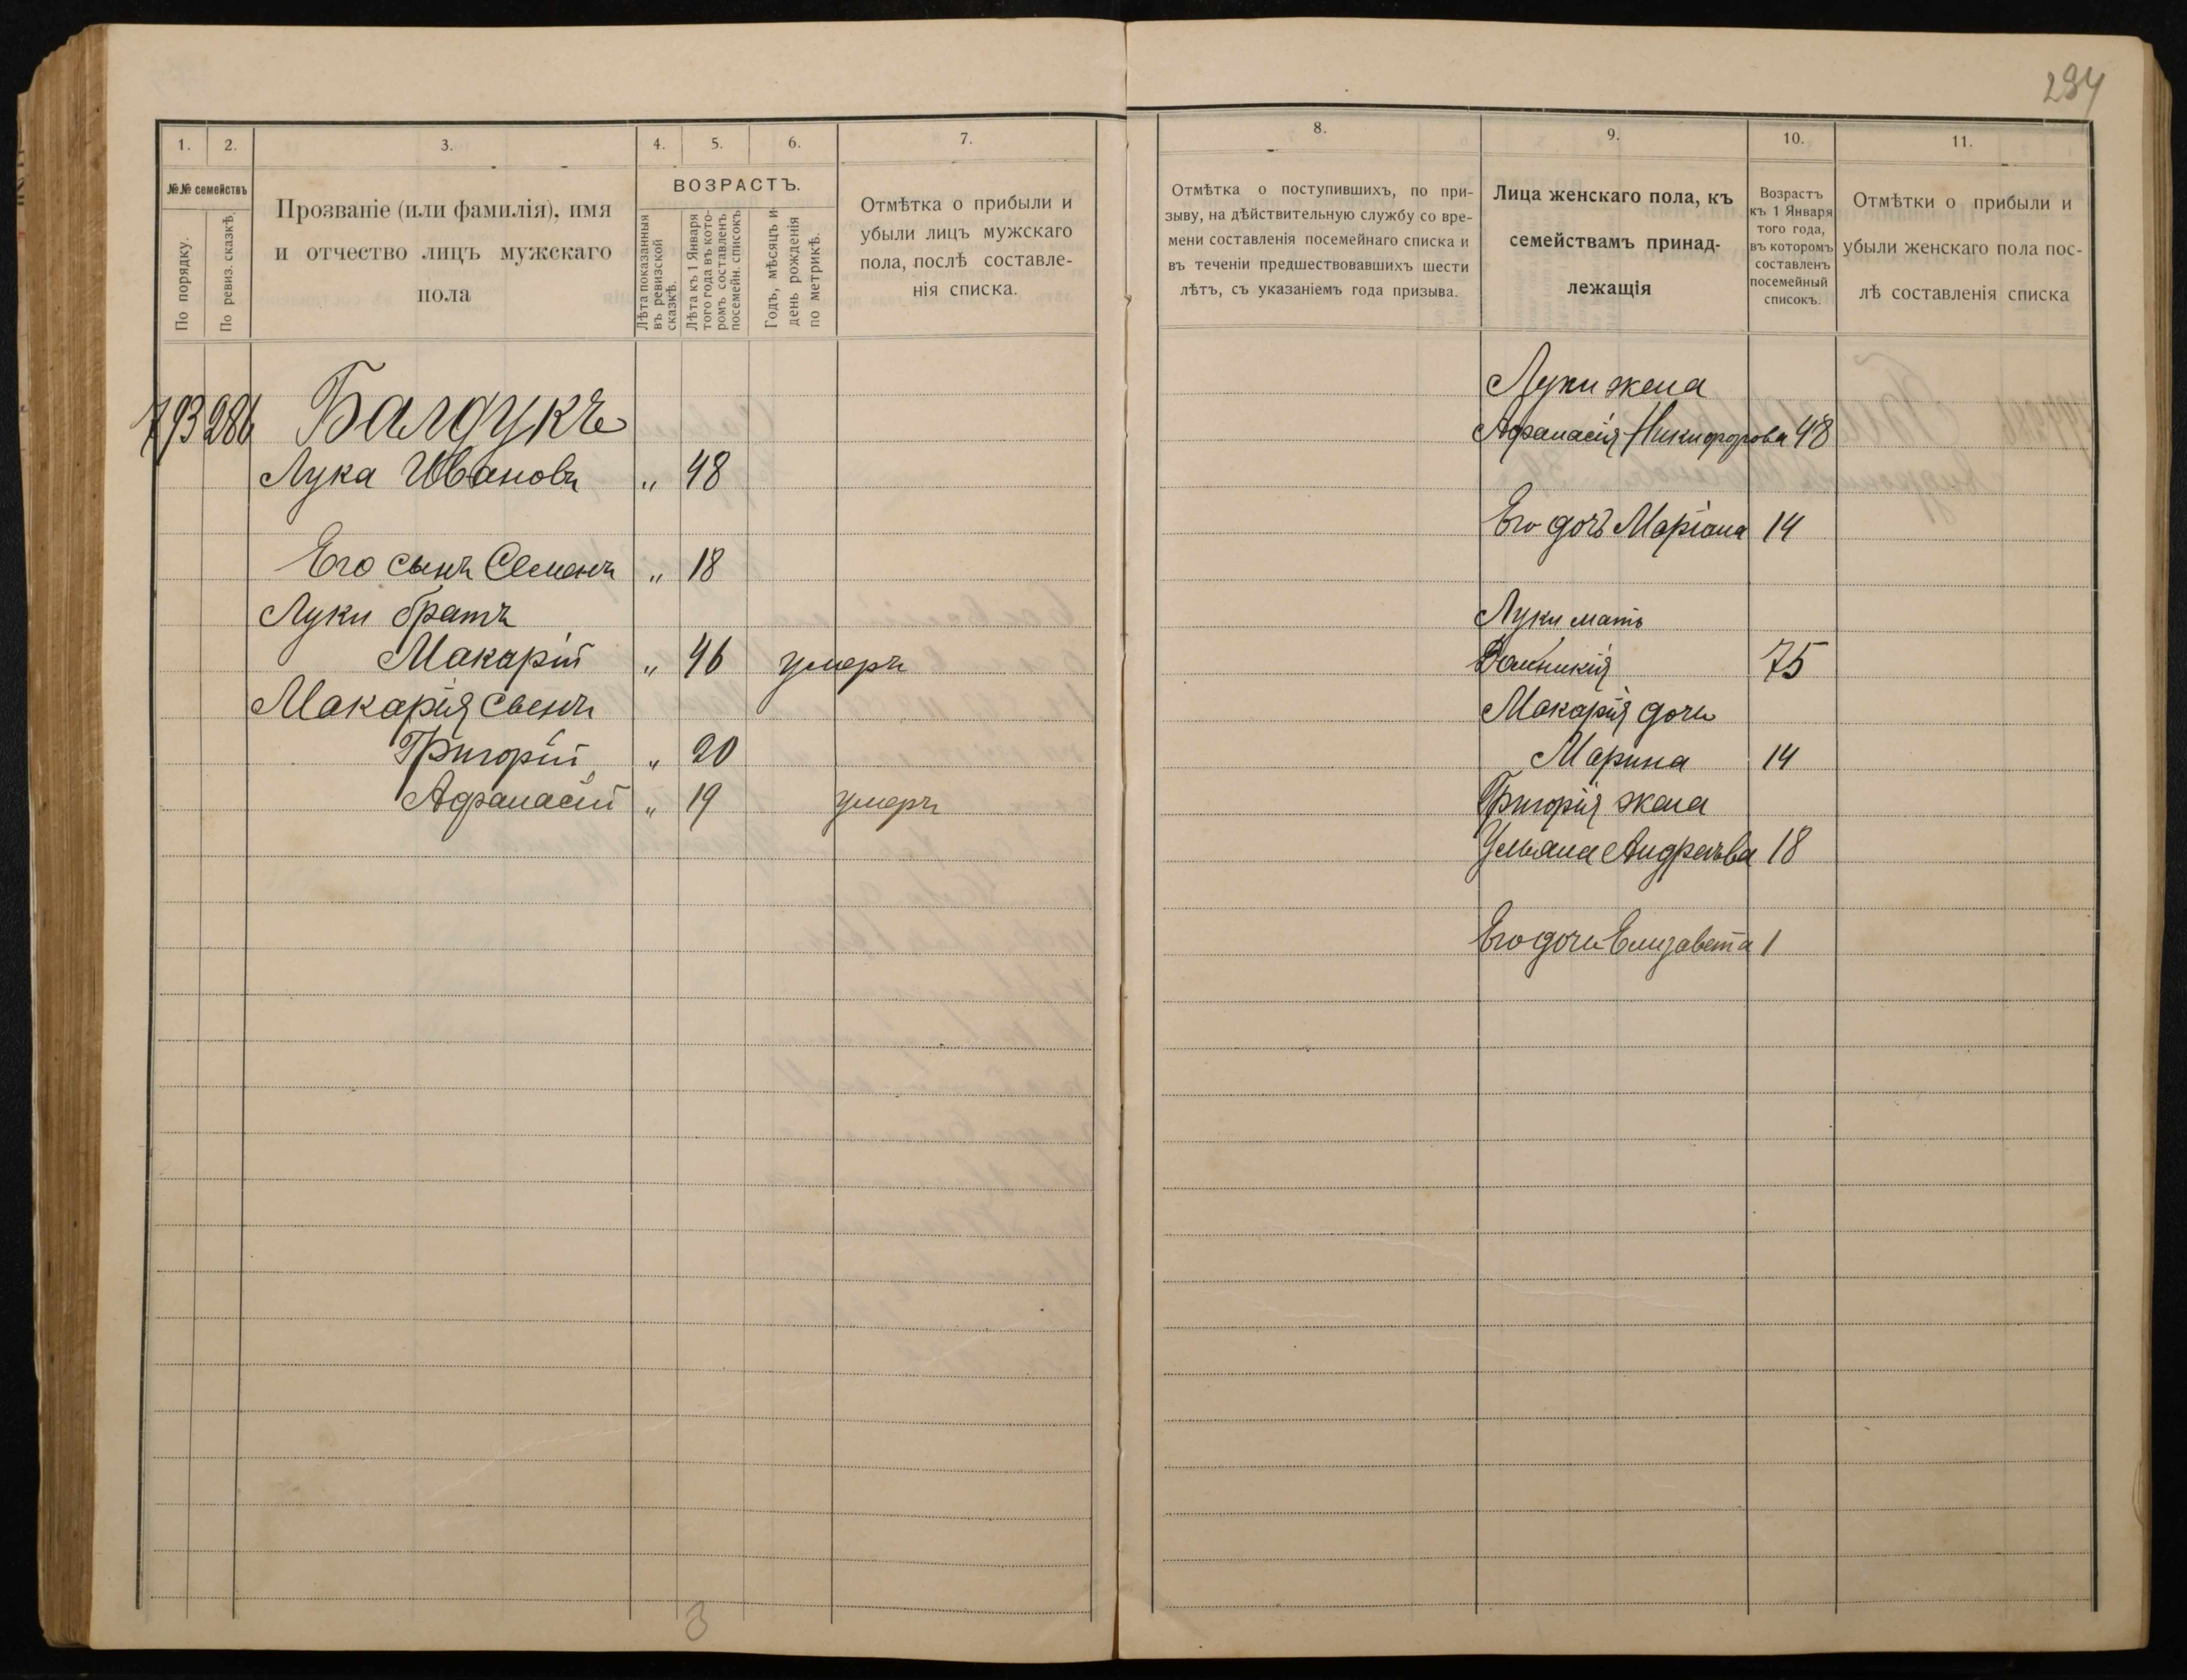 294
1. 2. 3. 4. 5. 6. 7.
№№ семействъ
По порядку.
По ревиз. сказкѣ.
Прозваніе (или фамилія), имя
и отчество лицъ мужскаго
пола
ВОЗРАСТЪ.
Лѣта показанныя
въ ревизской
сказкѣ.
Лѣта къ 1 Января
того года въ кото-
ромъ составленъ
посемейн. списокъ
Годъ, мѣсяцъ и
день рожденія
по метрикѣ.
Отмѣтка о прибыли и
убыли лицъ мужскаго
пола, послѣ составле-
нія списка.
793 286 Балдукъ
Лука Ивановъ " 48
Его сынъ Семенъ " 18
Луки братъ
Макарій " 46 умеръ
Макарія сынъ
Григорій " 20
Афанасій " 19 умеръ
3
8. 9. 10. 11.
Отмѣтка о поступившихъ, по при-
зыву, на дѣйствительную службу со вре-
мени составленія посемейнаго списка и
въ теченіи предшествовавшихъ шести
лѣтъ, съ указаніемъ года призыва.
Лица женскаго пола, къ
семействамъ принад-
лежащія
Возрастъ
къ 1 Января
того года,
въ которомъ
составленъ
посемейный
списокъ.
Отмѣтки о прибыли и
убыли женскаго пола пос-
лѣ составленія списка
Луки жена
Афанасія Никифорова 48
Его дочь Маріана 14
Луки мать
Домникія 75
Макарія дочь
Марина 14
Григорія жена
Ульяна Андреева 18
Его дочь Елизавета 1